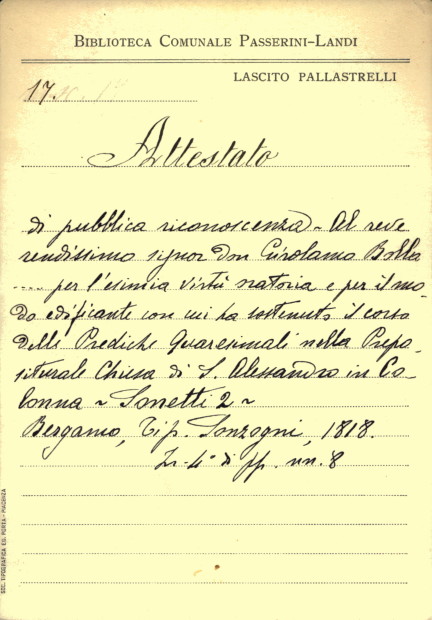 BIBLIOTECA COMUNALE PASSERINI-LANDI
LASCITO PALLASTRELLI
17.
Attestato
di pubblica riconoscenza - Al reve
rendissimo signor Don Girolamo Bolla
.... per l'esimia virtù oratoria e per il mo-
do edificante con cui ha sostenuto il corso
delle Prediche Quaresimali nella Prepo-
siturale Chiesa di S. Alessandro in Co-
lonna ~ Sonetti 2 ~
Bergamo, Tip. Sonzogni, 1818.
In-4° di pp. nn. 8
SOC. TIPOGRAFICA ED. PORTA - PIACENZA